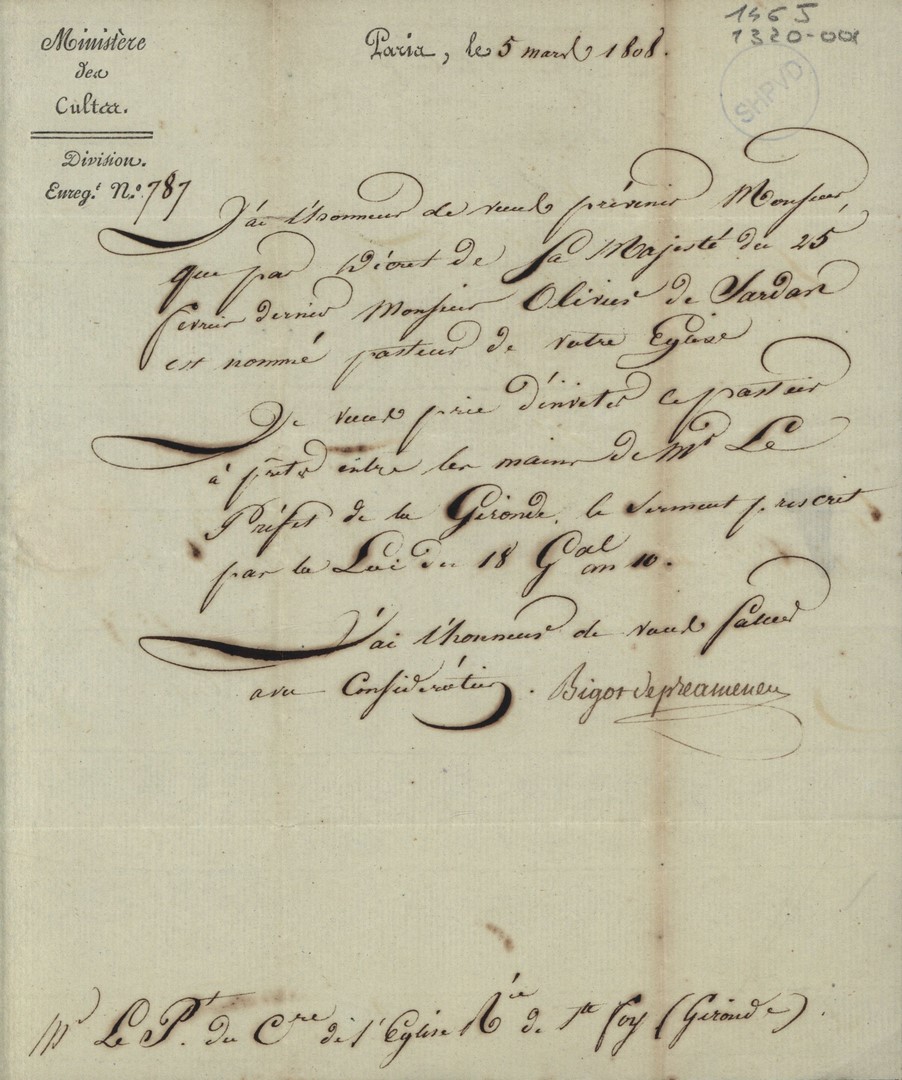 Ministère
des
Cultes.
Division.
Enreg.t N.o 787
Paris, le 5 mars 1808.
1465
1320-001
SHPVD
J'ai l'honneur de vous prévenir Monsieur,
que par Décret de Sa Majesté du 25
fevrier dernier Monsieur Olivier de Sardan
est nommé pasteur de votre Eglise
Je vous prie d'inviter ce pasteur
à prêter entre les mains de Mr Le
Préfet de la Gironde, le serment prescrit
par la Loi du 18 Gal an 10.
J'ai l'honneur de vous saluer
avec Considération. Bigot depreameneu
Mr Le Pt du Cre de l'Eglise Rée de Ste foy (Gironde).